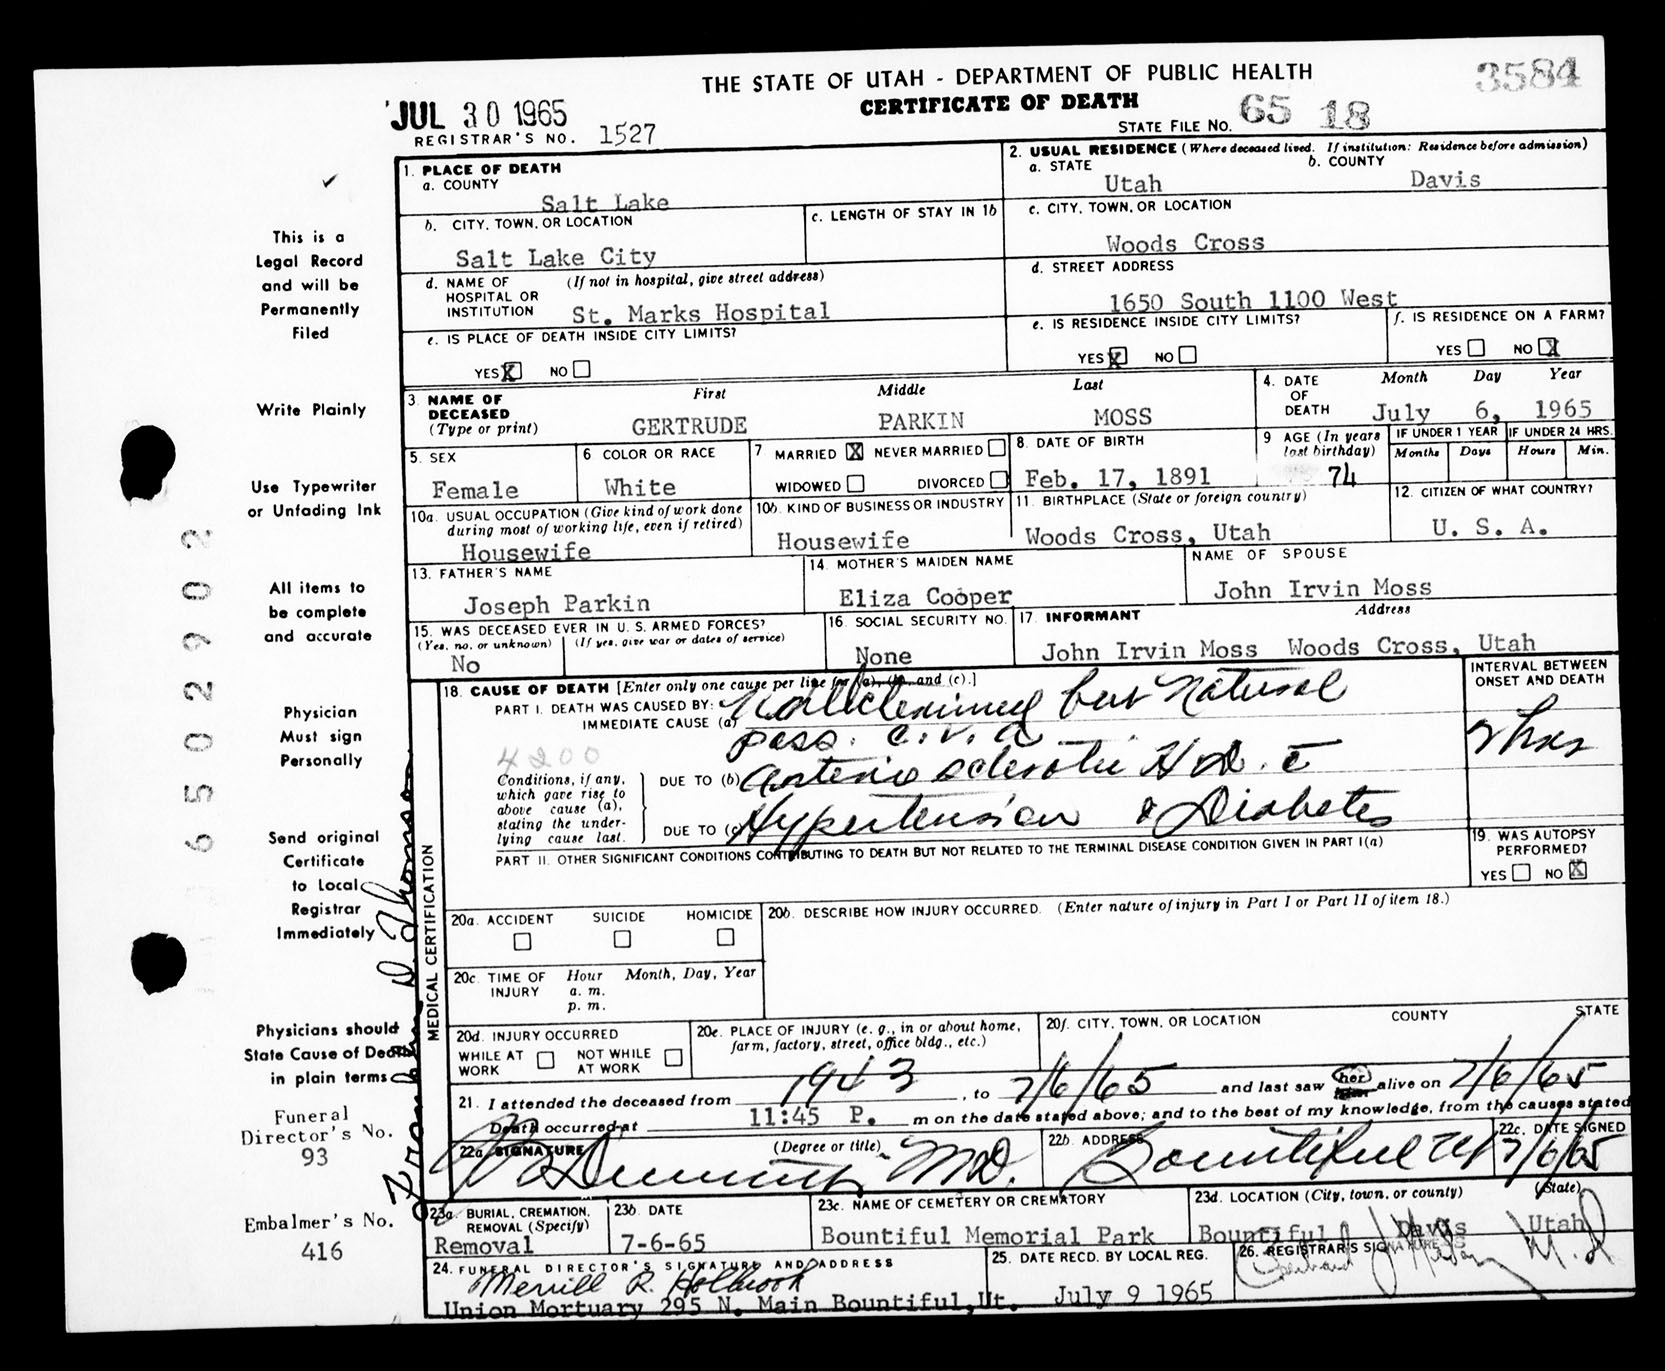 THE STATE OF UTAH - DEPARTMENT OF PUBLIC HEALTH
3584
CERTIFICATE OF DEATH
JUL 30 1965
STATE FILE NO. 65 18
REGISTRAR'S NO. 1527
✓
This is a
Legal Record
and will be
Permanently
Filed
Write Plainly
Use Typewriter
or Unfading Ink
All items to
be complete
and accurate
Physician
Must sign
Personally
Send original
Certificate
to Local
Registrar
Immediately
Physicians should
State Cause of Death
in plain terms
Funeral
Director's No.
93
Embalmer's No.
416
65029902
1. PLACE OF DEATH
a. COUNTY
Salt Lake
2. USUAL RESIDENCE (Where deceased lived. If institution: Residence before admission)
a. STATE b. COUNTY
Utah Davis
b. CITY, TOWN, OR LOCATION
Salt Lake City
c. LENGTH OF STAY IN 1b
c. CITY, TOWN, OR LOCATION
Woods Cross
d. NAME OF (If not in hospital, give street address)
HOSPITAL OR
INSTITUTION St. Marks Hospital
d. STREET ADDRESS
1650 South 1100 West
e. IS PLACE OF DEATH INSIDE CITY LIMITS?
YES X NO
e. IS RESIDENCE INSIDE CITY LIMITS?
YES X NO
f. IS RESIDENCE ON A FARM?
YES NO X
3. NAME OF First Middle Last
DECEASED
(Type or print) GERTRUDE PARKIN MOSS
4. DATE Month Day Year
OF
DEATH July 6, 1965
5. SEX
Female
6 COLOR OR RACE
White
7 MARRIED X NEVER MARRIED
WIDOWED DIVORCED
8. DATE OF BIRTH
Feb. 17, 1891
9 AGE (In years
last birthday)
74
IF UNDER 1 YEAR
Months Days
IF UNDER 24 HRS.
Hours Min.
10a. USUAL OCCUPATION (Give kind of work done
during most of working life, even if retired)
Housewife
10b. KIND OF BUSINESS OR INDUSTRY
Housewife
11. BIRTHPLACE (State or foreign country)
Woods Cross, Utah
12. CITIZEN OF WHAT COUNTRY?
U. S. A.
13. FATHER'S NAME
Joseph Parkin
14. MOTHER'S MAIDEN NAME
Eliza Cooper
NAME OF SPOUSE
John Irvin Moss
15. WAS DECEASED EVER IN U. S. ARMED FORCES?
(Yes, no, or unknown) (If yes, give war or dates of service)
No
16. SOCIAL SECURITY NO.
None
17. INFORMANT Address
John Irvin Moss Woods Cross, Utah
MEDICAL CERTIFICATION
18. CAUSE OF DEATH [Enter only one cause per line for (a), (b), and (c).]
INTERVAL BETWEEN
ONSET AND DEATH
PART I. DEATH WAS CAUSED BY:
IMMEDIATE CAUSE (a) but Natural
poss. C.V.A
4200
2 hrs
Conditions, if any,
which gave rise to
above cause (a),
stating the under-
lying cause last.
DUE TO (b) Arterio sclerotic H D. c̄
DUE TO (c) Hypertension & Diabetes
PART II. OTHER SIGNIFICANT CONDITIONS CONTRIBUTING TO DEATH BUT NOT RELATED TO THE TERMINAL DISEASE CONDITION GIVEN IN PART I(a)
19. WAS AUTOPSY
PERFORMED?
YES NO X
20a. ACCIDENT SUICIDE HOMICIDE
20b. DESCRIBE HOW INJURY OCCURRED. (Enter nature of injury in Part I or Part II of item 18.)
20c. TIME OF Hour Month, Day, Year
INJURY a. m.
p. m.
20d. INJURY OCCURRED
WHILE AT WORK NOT WHILE AT WORK
20e. PLACE OF INJURY (e. g., in or about home,
farm, factory, street, office bldg., etc.)
20f. CITY, TOWN, OR LOCATION COUNTY STATE
21. I attended the deceased from 1943, to 7/6/65 and last saw her him alive on 7/6/65
Death occurred at 11:45 P. m on the date stated above; and to the best of my knowledge, from the causes stated
22a. SIGNATURE (Degree or title)
M.D.
22b. ADDRESS
Bountiful Ut
22c. DATE SIGNED
7/6/65
23a. BURIAL, CREMATION,
REMOVAL (Specify)
Removal
23b. DATE
7-6-65
23c. NAME OF CEMETERY OR CREMATORY
Bountiful Memorial Park
23d. LOCATION (City, town, or county) (State)
Bountiful Davis Utah
24. FUNERAL DIRECTOR'S SIGNATURE AND ADDRESS
Merrill R. Holbrook
Union Mortuary 295 N. Main Bountiful, Ut.
25. DATE RECD. BY LOCAL REG.
July 9 1965
26. REGISTRAR'S SIGNATURE
M.D